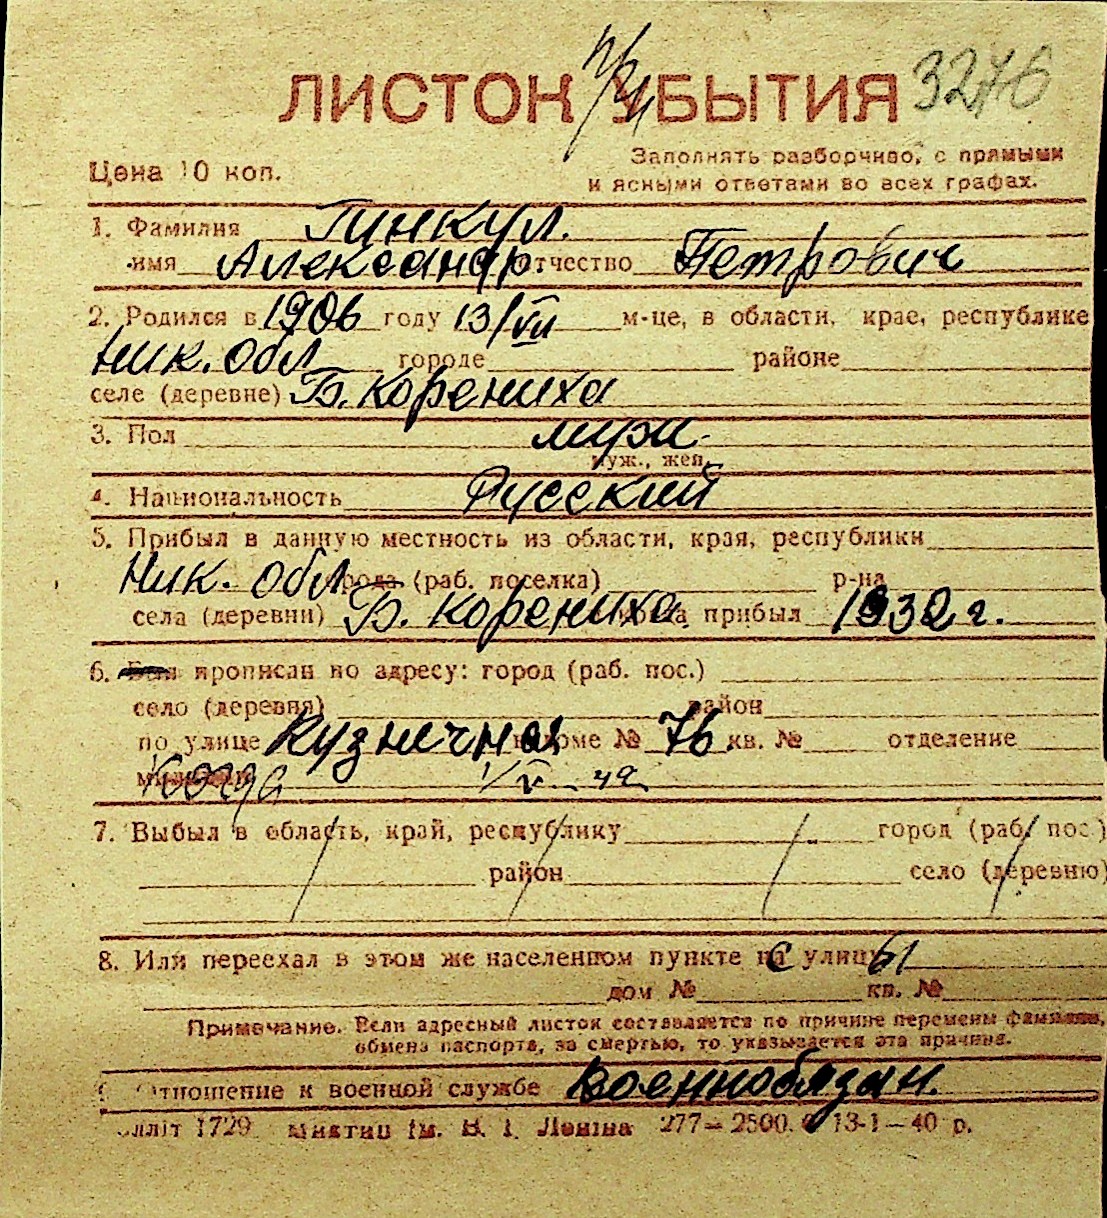 ЛИСТОК УБЫТИЯ 3276
Цена 10 коп.
Заполнять разборчиво, с прямыми
и ясными ответами во всех графах.
1. Фамилия Гункул.
имя Александр. отчество Петрович
2. Родился в 1906 году 13/VII м-це, в области, крае, республике
Ник. обл городе районе
селе (деревне) Б. Корениха
3. Пол муж.
муж., жен.
4. Национальность Русский
5. Прибыл в данную местность из области, края, республики
Ник. обл города (раб. поселка) р-на
села (деревни) Б. Корениха. прибыл 1932 г.
6. Был прописан по адресу: город (раб. пос.)
село (деревня) район
по улице Кузнечная в доме № 76 кв. № отделение
Когда 1/V-42
7. Выбыл в область, край, республику город (раб. пос.)
район село (деревню)
8. Или переехал в этом же населенном пункте с улицы
дом № кв. №
Примечание. Если адресный листок составляется по причине перемены фамилии,
обмена паспорта, за смертью, то указывается эта причина.
9. Отношение к военной службе военнообязан.
1729 Миктип ім. В. І. Леніна 277—2500. 13-1—40 р.